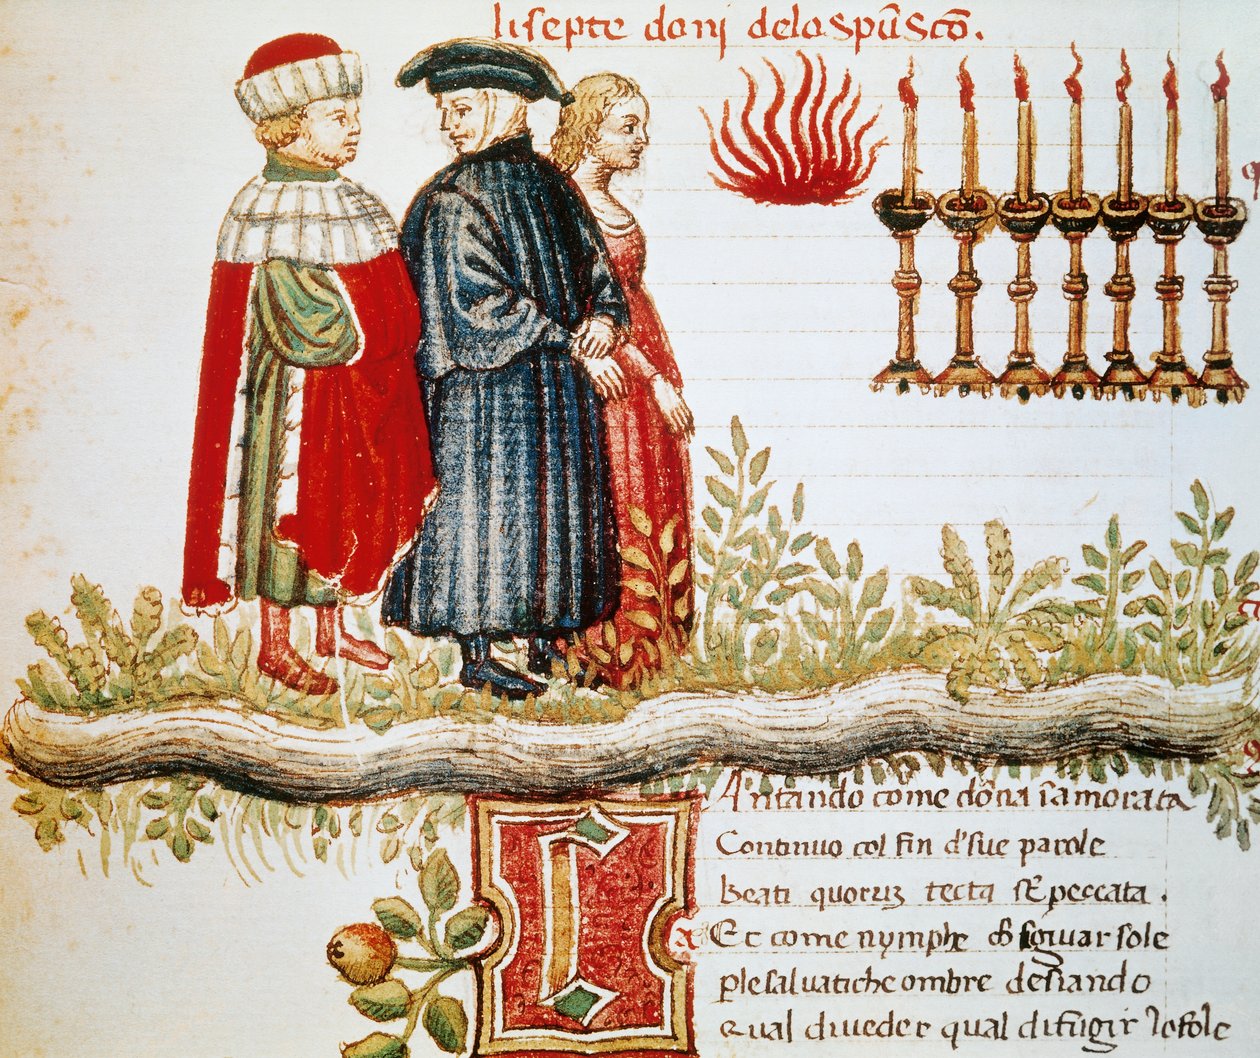 li septe donj delo spũ scõ.
Antando come dõna ĩamorata
Continuo col fin d'sue parole
Beati quoruʒ tecta sẽ peccata.
Et come nymphe sguar sole
ple saluatiche ombre desiando
qual diueder qual difugir lo sole